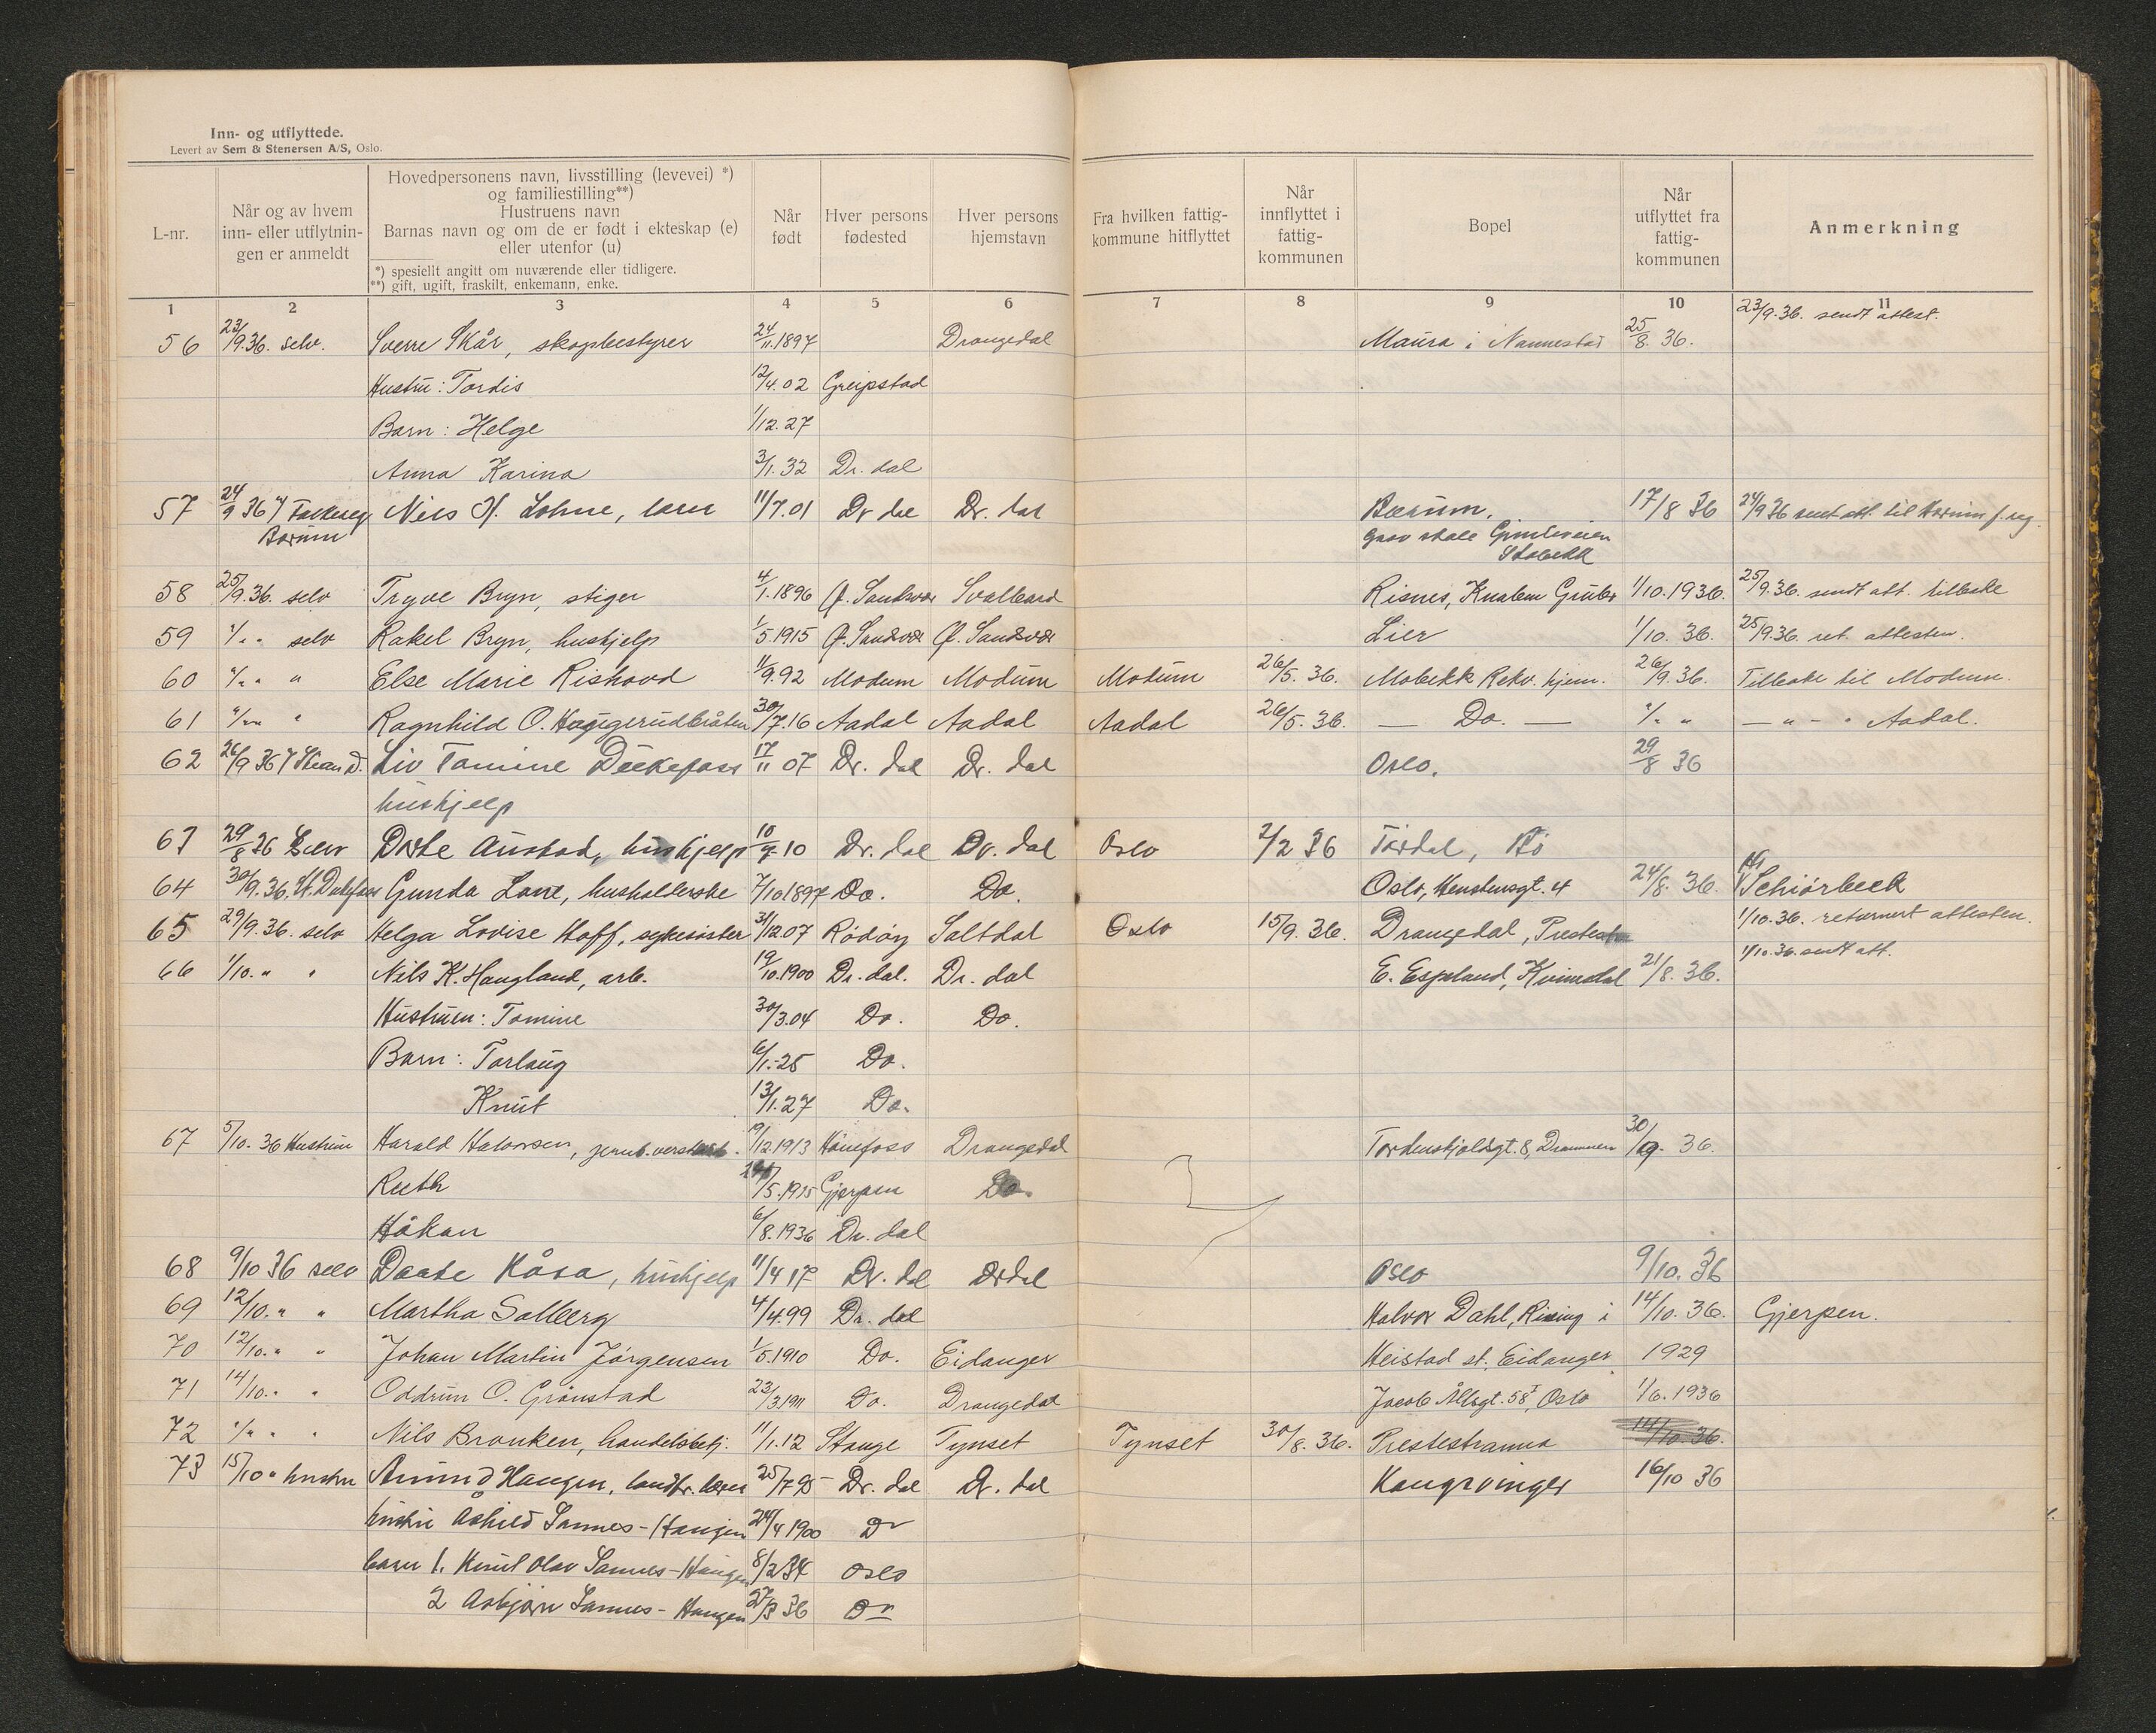 Inn- og utflyttede.
Levert av Sem & Stenersen A/S, Oslo.
L-nr.
Når og av hvem inn- eller utflytnin-gen er anmeldt
Hovedpersonens navn, livsstilling (levevei) *) og familiestilling**)
Hustruens navn
Barnas navn og om de er født i ekteskap (e) eller utenfor (u)
*) spesiellt angitt om nuværende eller tidligere.
**) gift, ugift, fraskilt, enkemann, enke.
Når født
Hver persons fødested
Hver persons hjemstavn
Fra hvilken fattig-kommune hitflyttet
Når innflyttet i fattig-kommunen
Bopel
Når utflyttet fra fattig-kommunen
Anmerkning
1 2 3 4 5 6 7 8 9 10 11
23/9.36. sendt attest.
56 23/9.36. selv. Sverre Skår, skogbestyrer 24/11.1897 Drangedal Maura i Nannestad 25/8. 36.
Hustru: Tordis 12/4.02 Greipstad
Barn: Helge 1/12.27
Anna Karina 3/1.32 Dr. dal
57 24/9 36 Nils H. Lohne, lærer 11/7.01 Dr dal Dr. dal Bærum. 17/8 36 24/9 36 sent att. til Bærum f.reg.
Bærum Grav skole Gimleveien
Stabekk
58 25/9.36. selv Trygve Bryn, stiger 4/1.1896 Ø. Sandsvær Svalbard Risnes, Knaben Gruber 1/10.1936. 25/9.36. sendt att. tilbake
59 "/" " selv Rakel Bryn, hushjelp 1/5.1915 Ø. Sandsvær Ø. Sandsvær Lier 1/10. 36. 25/9.36. ret. attesten.
60 "/" " " Else Marie Rishovd 11/9.92 Modum Modum Modum 26/5. 36. Mobekk Rekv. hjem. 26/9. 36. Tilbake til Modum.
61 "/" " " Ragnhild O. 30/7.16 Aadal Aadal Aadal 26/5. 36. — Do. — "/" " — " — " Aadal.
62 26/9 36 Liv Tomine Dekefoss 17/11 07 Dr. dal Dr. dal Oslo. 29/8 36
hushjelp
63 29/8 36 Selv Dorte Austad, hushjelp 10/9.10 Dr. dal Dr. dal Oslo 2/2 36 Tørdal, Bø
64 30/9.36. Gunda Lone, husholderske 7/10.1897 Do. Do. Oslo, 24/8. 36. Schiørbeck
65 29/9.36. selv Helga Lovise Hoff, sykesøster 31/12.07 Rødøy Saltdal Oslo 15/9. 36. Drangedal, 1/10.36. returnert attesten.
66 1/10. " " Nils K. Haugland, arb. 19/10.1900 Dr. dal. Dr. dal E. Espeland, Kvinesdal 21/8. 36. 1/10.36. sendt att.
Hustruen: Tomine 30/3.04 Do. Do.
Barn: Torlaug 6/1.25 Do.
Knut 13/1.27 Do.
67 5/10. 36 Hustruen Harald Halvorsen, 9/12.1913 Hønefoss Drangedal Tordenskjoldsgt. 8, Drammen 30/9. 36.
Ruth 24/5.1915 Gjerpen Do.
Håkan 6/8.1936 Dr. dal
68 9/10 36 selv Daate Kåsa, hushjelp 11/4 17 Dr. dal Drdal Oslo 9/10. 36
69 12/10. " " Martha Solberg 4/4.99 Dr. dal Halvor Dahl, Rising i 14/10. 36. Gjerpen.
70 12/10. " " Johan Martin Jørgensen 1/5.1910 Do. Eidanger Heistad st. Eidanger 1929
71 14/10. " " Oddrun O. Grønstad 23/3.1911 Do. Drangedal Jacob Allsgt. 58 I, Oslo 1/6. 1936
72 "/" " " Nils Brouken, handelsbetj. 11/1.12 Stange Tynset Tynset 30/8. 36. Prestestranna 14/10. 36.
73 15/10 " hustru Amund Haugen, landbr. lærer 25/7 95 Dr. dal Dr. dal Kongsvinger 16/10 36
hustru Åshild Sannes-Haugen 24/4 1900 Do
barn 1. Knut Olav Sannes-Haugen 8/2 34 Oslo
2 Asbjørn Sannes-Haugen 27/3 36 Do